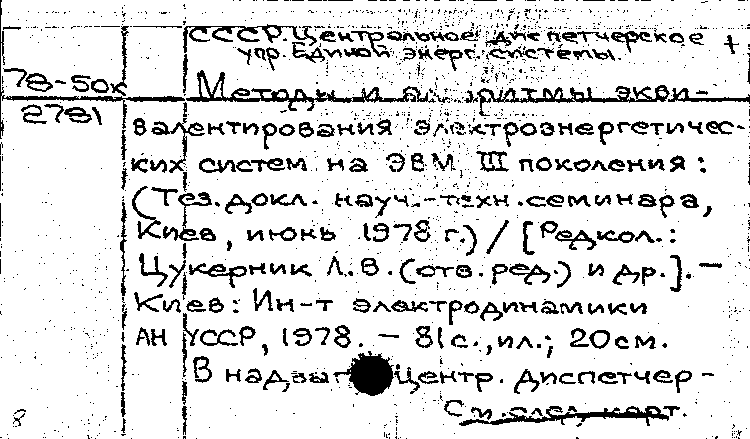 СССР. Центральное диспетчерское +
упр. Единой энерг. системы.
78-50к Методы и алгоритмы экви-
2781
валентирования электроэнергетичес-
ких систем на ЭВМ III поколения:
(Тез. докл. науч.-техн. семинара,
Киев, июнь 1978 г.) / [Редкол.:
Цукерник Л.В. (отв. ред.) и др.]. —
Киев: Ин-т электродинамики
АН УССР, 1978. — 81 с., ил.; 20 см.
В надзаг Центр. диспетчер-
См. след. карт.
8